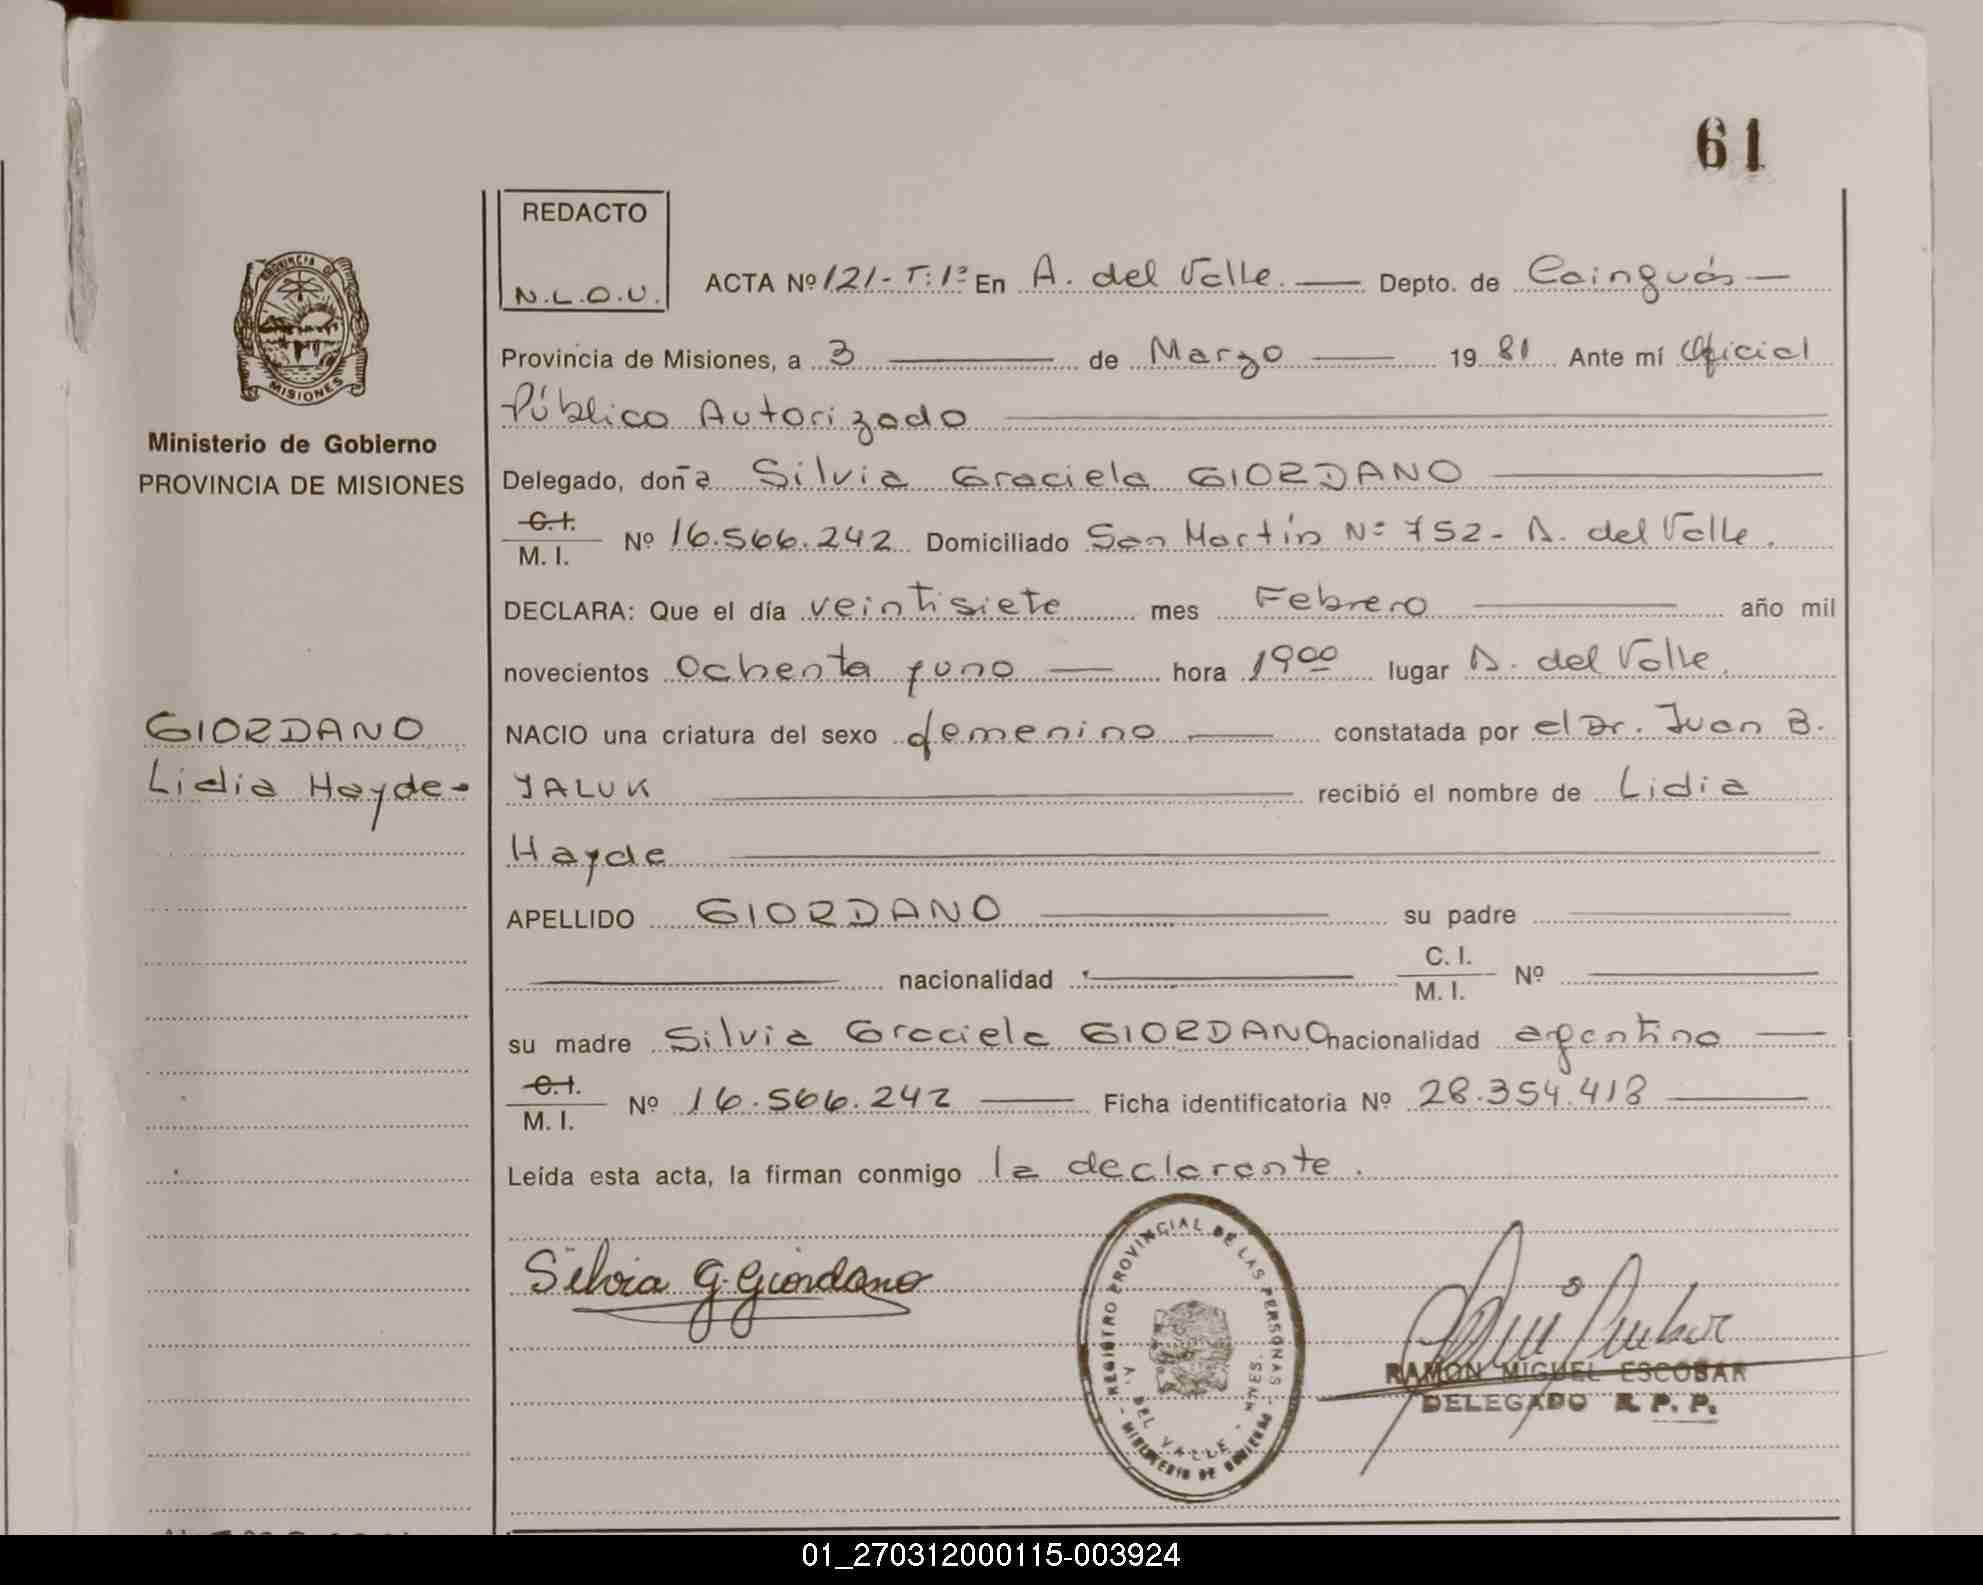 61
REDACTO
N.L.O.U.
ACTA Nº 121-T:1º En A. del Valle. Depto. de Cainguás
Provincia de Misiones, a 3 de Marzo 19 81 Ante mí Oficial
Público Autorizado
PROVINCIA DE
MISIONES
Ministerio de Gobierno
PROVINCIA DE MISIONES
Delegado, doña Silvia Graciela GIORDANO
C.I.
M. I. Nº 16.566.242 Domiciliado San Martín Nº 752 - A. del Valle.
DECLARA: Que el día veintisiete mes Febrero año mil
novecientos ochenta y uno hora 19 00 lugar A. del Valle.
GIORDANO
Lidia Hayde-
NACIO una criatura del sexo femenino constatada por el Dr. Juan B.
YALUK recibió el nombre de Lidia
Hayde
APELLIDO GIORDANO su padre
nacionalidad C. I.
M. I. Nº
su madre Silvia Graciela GIORDANO nacionalidad argentina
C.I.
M. I. Nº 16.566.242 Ficha identificatoria Nº 28.354.418
Leída esta acta, la firman conmigo la declarante.
Silvia G. Giordano
REGISTRO PROVINCIAL DE LAS PERSONAS
A. DEL VALLE - MNES.
- MINISTERIO DE GOBIERNO -
RAMON MIGUEL ESCOBAR
DELEGADO R. P. P.
01_270312000115-003924